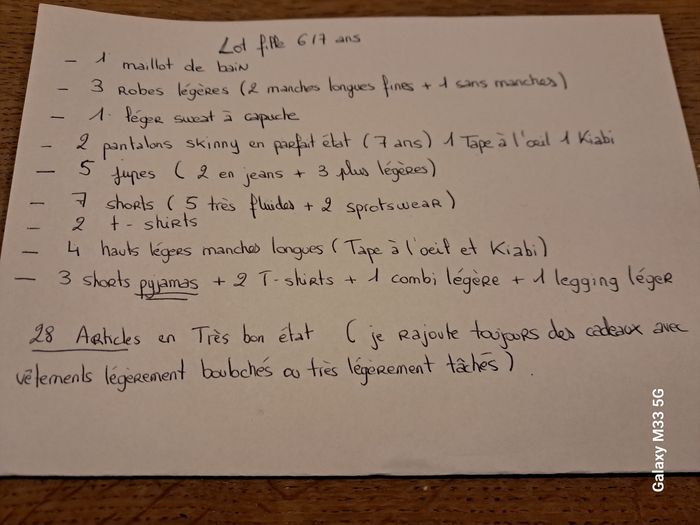 Lot fille 6/7 ans
- 1 maillot de bain
- 3 Robes légères (2 manches longues fines + 1 sans manches)
- 1 léger sweat à capuche
- 2 pantalons skinny en parfait état (7 ans) 1 Tape à l'œil 1 Kiabi
- 5 jupes (2 en jeans + 3 plus légères)
- 7 shorts (5 très fluides + 2 sprotswear)
- 2 t-shirts
- 4 hauts légers manches longues (Tape à l'oeil et Kiabi)
- 3 shorts pyjamas + 2 T-shirts + 1 combi légère + 1 legging léger
28 Articles en Très bon état (je rajoute toujours des cadeaux avec
vêtements légèrement boulochés ou très légèrement tâchés).
Galaxy M33 5G